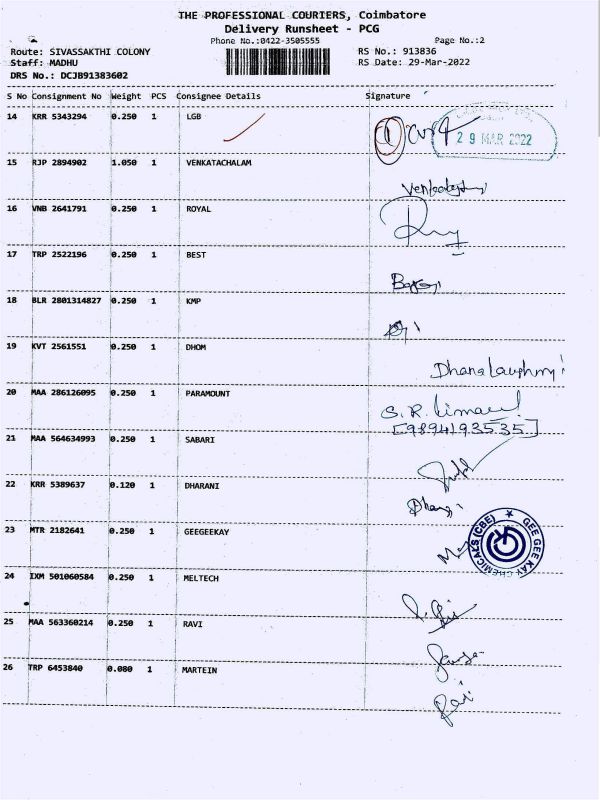 THE PROFESSIONAL COURIERS, Coimbatore
Delivery Runsheet - PCG
Phone No.:0422-3505555 Page No.:2
Route: SIVASSAKTHI COLONY RS No.: 913836
Staff: MADHU RS Date: 29-Mar-2022
DRS No.: DCJB91383602
S No Consignment No Weight PCS Consignee Details Signature
14 KRR 5343294 0.250 1 LGB
29 MAR 2022
15 RJP 2894902 1.050 1 VENKATACHALAM
16 VNB 2641791 0.250 1 ROYAL
17 TRP 2522196 0.250 1 BEST
18 BLR 2801314827 0.250 1 KMP
19 KVT 2561551 0.250 1 DHOM
20 MAA 286126095 0.250 1 PARAMOUNT
[9894193535]
21 MAA 564634993 0.250 1 SABARI
22 KRR 5389637 0.120 1 DHARANI
23 MTR 2182641 0.250 1 GEEGEEKAY
GEE GEE KAY CHEMICALS (CBE)
24 IXM 501060584 0.250 1 MELTECH
25 MAA 563360214 0.250 1 RAVI
26 TRP 6453840 0.080 1 MARTEIN